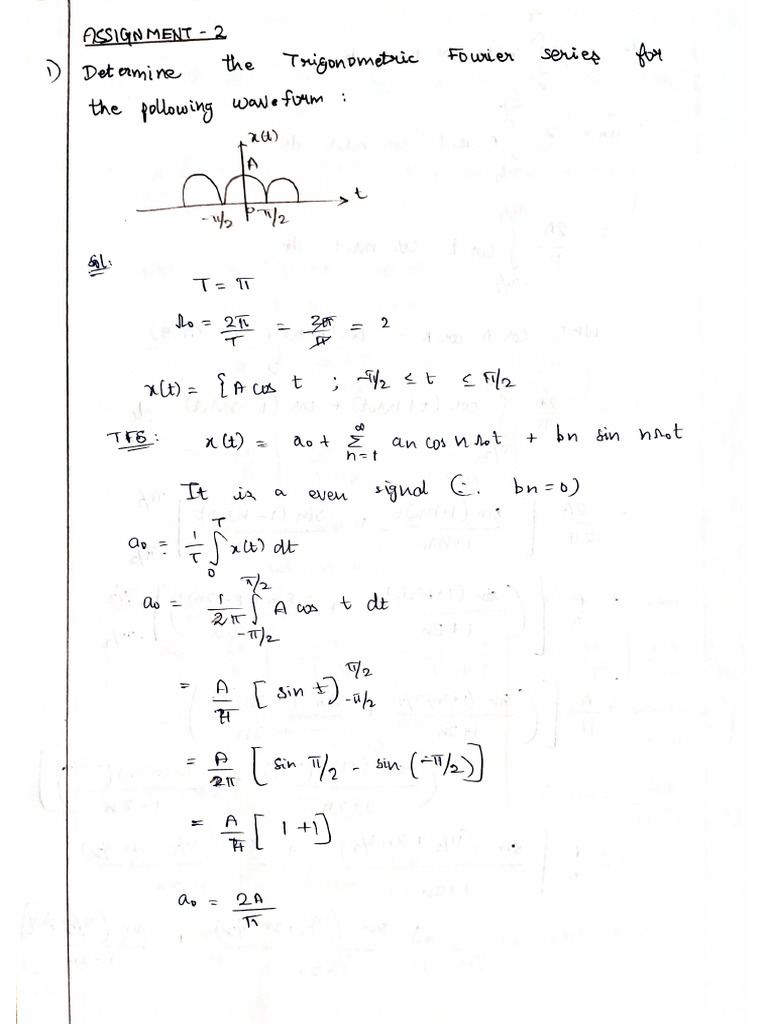 ASSIGNMENT - 2
1) Determine the Trigonometric Fourier series for
the following waveform :
x(t)
A
t
-π/2 0 π/2
Sol:
T = π
Ω₀ = 2π/T = 2π/π = 2
x(t) = { A cos t ; -π/2 ≤ t ≤ π/2
TFS: x(t) = a₀ + Σ_{n=1}^{∞} an cos nΩ₀t + bn sin nΩ₀t
It is a even signal (∴ bn = 0)
a₀ = 1/T ∫_0^T x(t) dt
a₀ = 1/π ∫_{-π/2}^{π/2} A cos t dt
= A/π [sin t]_{-π/2}^{π/2}
= A/π [sin π/2 - sin (-π/2)]
= A/π [1 + 1]
a₀ = 2A/π